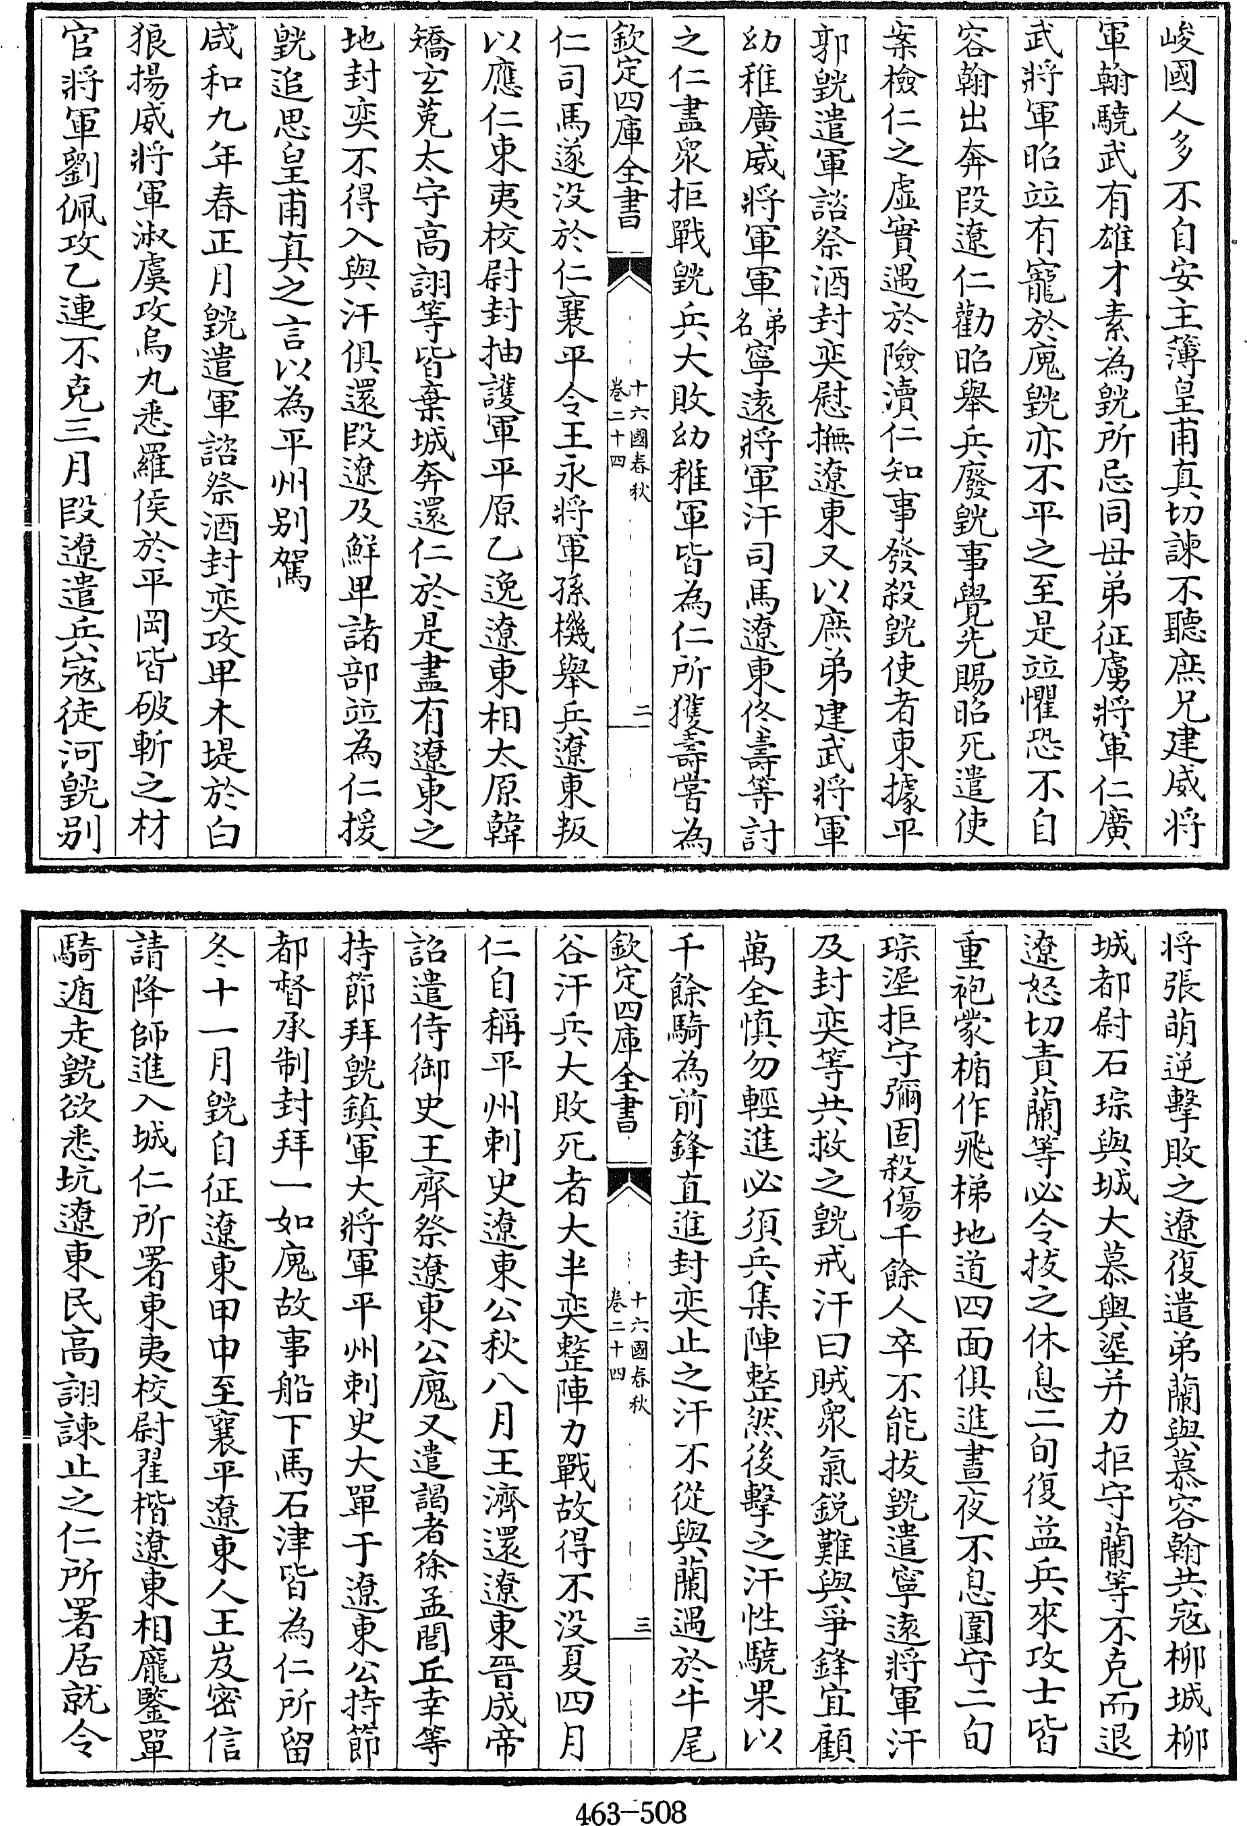 峻國人多不自安主薄皇甫真切諫不聽庶兄建威將
軍翰驍武有雄才素為皝所忌同母弟征虜將軍仁廣
武將軍昭竝有寵於廆皝亦不平之至是竝懼恐不自
容翰出奔段遼仁勸昭舉兵廢皝事覺先賜昭死遣使
案檢仁之虛實遇於險瀆仁知事發殺皝使者東據平
郭皝遣軍諮祭酒封奕慰撫遼東又以庶弟建武將軍
幼稚廣威將軍軍弟名寧遠將軍汗司馬遼東佟壽等討
之仁盡衆拒戰皝兵大敗幼稚軍皆為仁所獲壽嘗為
欽定四庫全書
十六國春秋
卷二十四
二
仁司馬遂没於仁襄平令王永將軍孫機舉兵遼東叛
以應仁東夷校尉封抽護軍平原乙逸遼東相太原韓
矯玄菟太守高詡等皆棄城奔還仁於是盡有遼東之
地封奕不得入與汗俱還段遼及鮮卑諸部竝為仁援
皝追思皇甫真之言以為平州别駕
咸和九年春正月皝遣軍諮祭酒封奕攻卑木堤於白
狼揚威將軍淑虞攻烏丸悉羅侯於平岡皆破斬之材
官將軍劉佩攻乙連不克三月段遼遣兵寇徒河皝别
將張萌逆擊敗之遼復遣弟蘭與慕容翰共寇柳城柳
城都尉石琮與城大慕輿埿并力拒守蘭等不克而退
遼怒切責蘭等必令拔之休息二旬復益兵來攻士皆
重袍蒙楯作飛梯地道四面俱進晝夜不息圍守二旬
琮埿拒守彌固殺傷千餘人卒不能拔皝遣寧遠將軍汗
及封奕等共救之皝戒汗曰賊衆氣銳難與爭鋒宜顧
萬全慎勿輕進必須兵集陣整然後擊之汗性驍果以
千餘騎為前鋒直進封奕止之汗不從與蘭遇於牛尾
欽定四庫全書
十六國春秋
卷二十四
三
谷汗兵大敗死者大半奕整陣力戰故得不没夏四月
仁自稱平州刺史遼東公秋八月王濟還遼東晉成帝
詔遣侍御史王齊祭遼東公廆又遣謁者徐孟閭丘幸等
持節拜皝鎮軍大將軍平州刺史大單于遼東公持節
都督承制封拜一如廆故事船下馬石津皆為仁所留
冬十一月皝自征遼東甲申至襄平遼東人王岌密信
請降師進入城仁所署東夷校尉翟楷遼東相龐鑒單
騎遁走皝欲悉坑遼東民高詡諫止之仁所署居就令
463-508